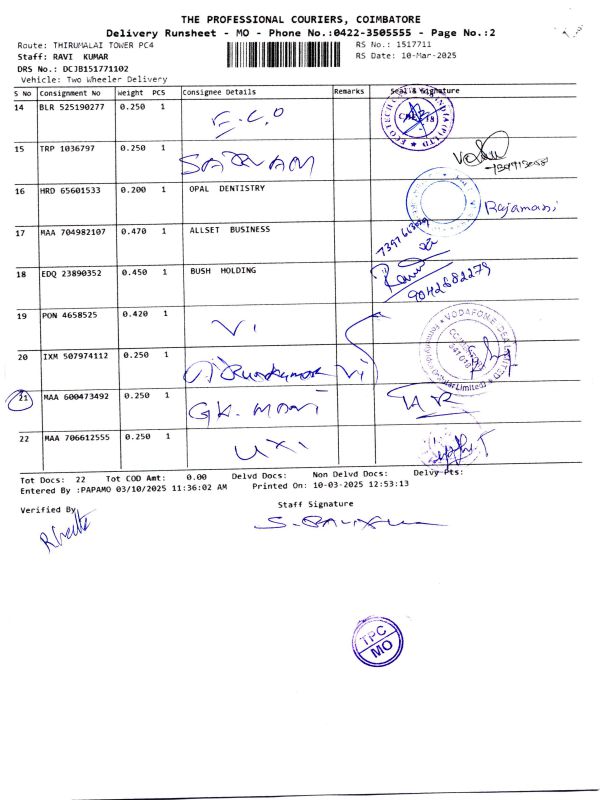 THE PROFESSIONAL COURIERS, COIMBATORE
Delivery Runsheet - MO - Phone No.:0422-3505555 - Page No.:2
Route: THIRUMALAI TOWER PC4 RS No.: 1517711
Staff: RAVI KUMAR RS Date: 10-Mar-2025
DRS No.: DCJB151771102
Vehicle: Two Wheeler Delivery
S No Consignment No Weight PCS Consignee Details Remarks Seal & Signature
14 BLR 525190277 0.250 1 E.C.O
15 TRP 1036797 0.250 1
16 HRD 65601533 0.200 1 OPAL DENTISTRY Rajamani
17 MAA 704982107 0.470 1 ALLSET BUSINESS
18 EDQ 23890352 0.450 1 BUSH HOLDING
9042682279
19 PON 4658525 0.420 1 Vi
VODAFONE IDEA LIMITED
20 IXM 507974112 0.250 1 Vi
21 MAA 600473492 0.250 1 GK. Mani
22 MAA 706612555 0.250 1
Tot Docs: 22 Tot COD Amt: 0.00 Delvd Docs: Non Delvd Docs: Delvy Pts:
Entered By :PAPAMO 03/10/2025 11:36:02 AM Printed On: 10-03-2025 12:53:13
Verified By Staff Signature
TPC
MO